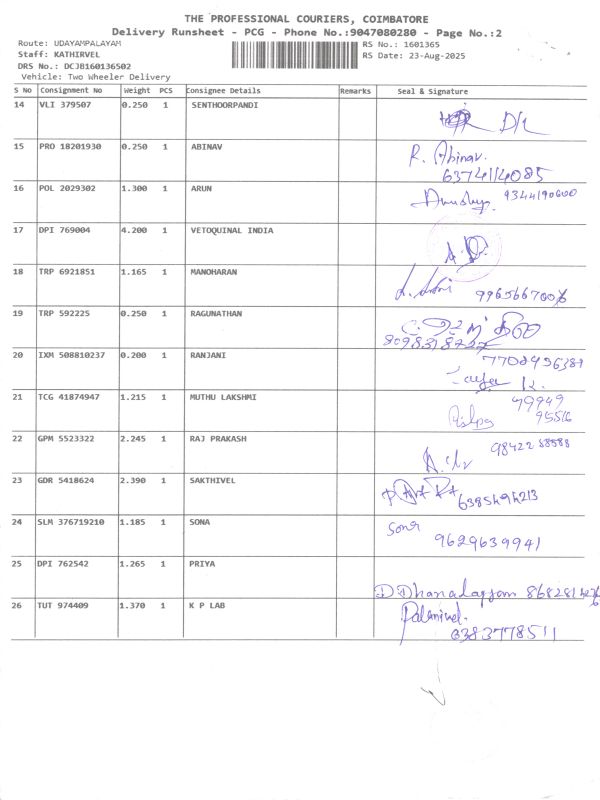 THE PROFESSIONAL COURIERS, COIMBATORE
Delivery Runsheet - PCG - Phone No.:9047080280 - Page No.:2
Route: UDAYAMPALAYAM
RS No.: 1601365
Staff: KATHIRVEL
RS Date: 23-Aug-2025
DRS No.: DCJB160136502
Vehicle: Two Wheeler Delivery
S No Consignment No Weight PCS Consignee Details Remarks Seal & Signature
14 VLI 379507 0.250 1 SENTHOORPANDI
15 PRO 18201930 0.250 1 ABINAV R. Abinav.
6374114085
16 POL 2029302 1.300 1 ARUN 9344190600
17 DPI 769004 4.200 1 VETOQUINAL INDIA
18 TRP 6921851 1.165 1 MANOHARAN
19 TRP 592225 0.250 1 RAGUNATHAN
20 IXM 508810237 0.200 1 RANJANI
21 TCG 41874947 1.215 1 MUTHU LAKSHMI 79949
95516
22 GPM 5523322 2.245 1 RAJ PRAKASH
23 GDR 5418624 2.390 1 SAKTHIVEL
24 SLM 376719210 1.185 1 SONA Sona
9629639941
25 DPI 762542 1.265 1 PRIYA
26 TUT 974409 1.370 1 K P LAB Palanivel.
6383778511